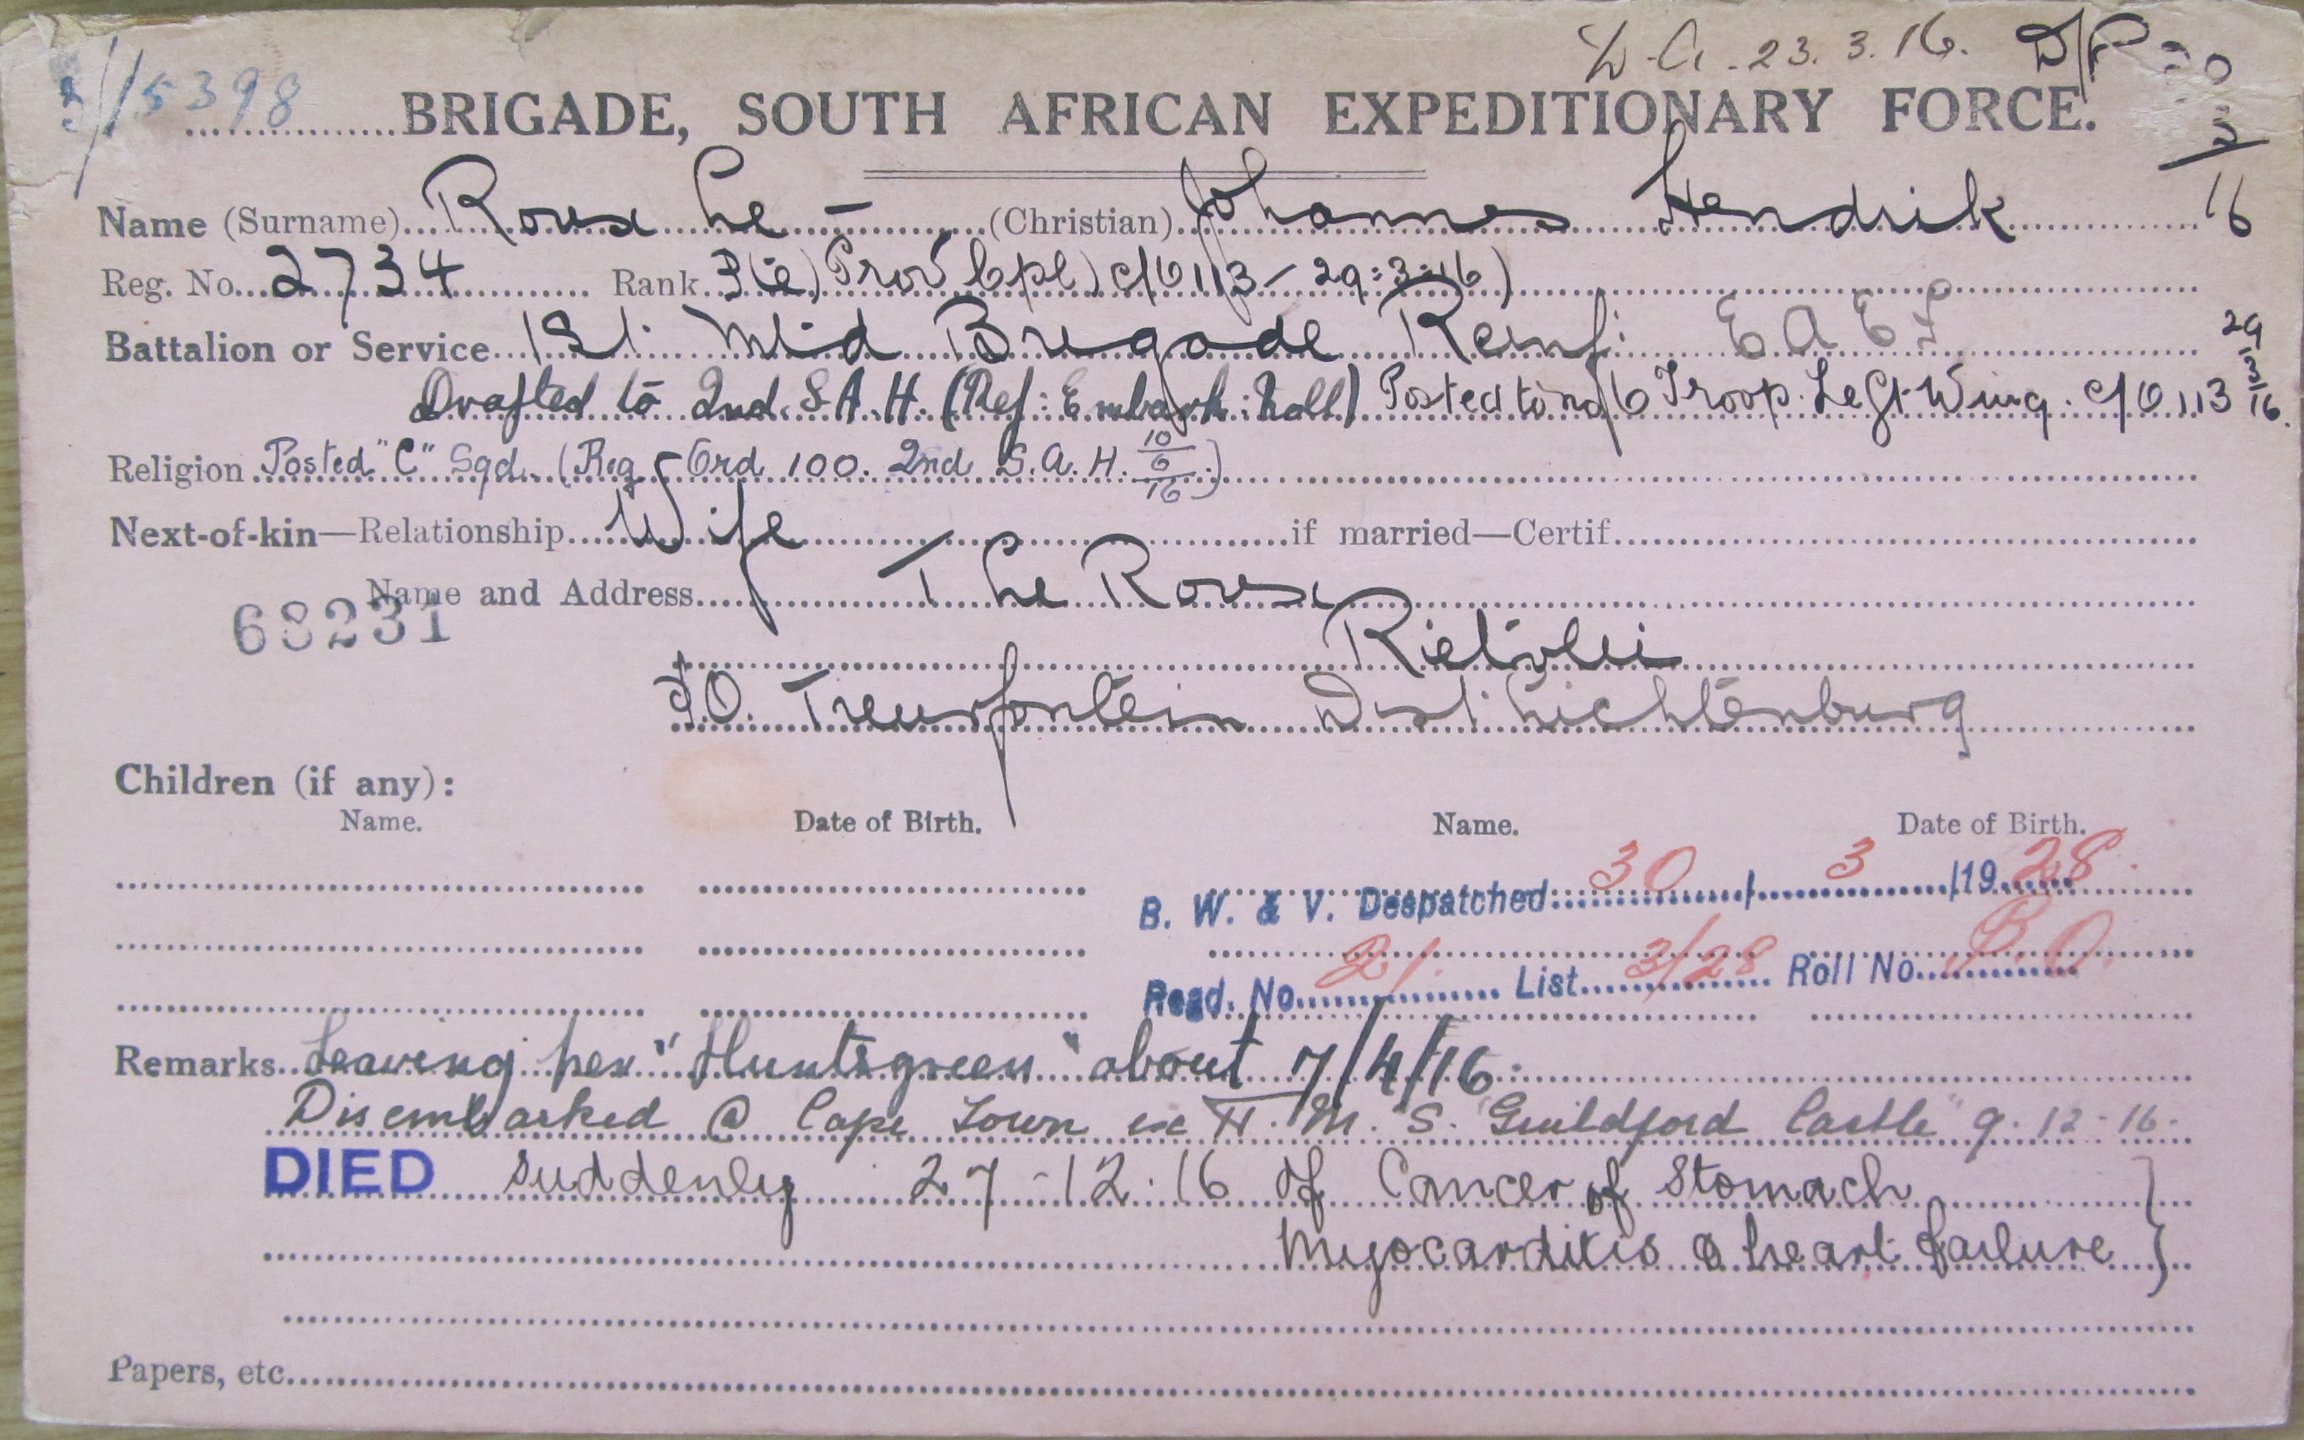 D.A. 23.3.16. D/P 20/3/16
5/15398
BRIGADE, SOUTH AFRICAN EXPEDITIONARY FORCE.
Name (Surname) Roux Le - (Christian) Johannes Hendrik
Reg. No. 2734 Rank P(e) Prov Cpl) c/o 113 - 29:3:16)
Battalion or Service 1st Mtd Brigade Reinf: E A E F
Drafted to 2nd S A H. (Ref: Embark: Roll) Posted to no 6 Troop. Left Wing. c/o 113 29/3/16.
Religion Posted "C" Sqd. (Reg Ord 100. 2nd S.A.H. 10/6/16.)
Next-of-kin—Relationship Wife if married—Certif
Name and Address The Roux
68231
Rietvlei
P.O. Treurfontein Dist Lichtenburg
Children (if any):
Name. Date of Birth. Name. Date of Birth.
B. W. & V. Despatched 30 / 3 /19 28.
Regd. No. 21. List 3/28 Roll No. B.O.
Remarks Leaving per "Huntsgreen" about 7/4/16.
Disembarked @ Cape Town ex H.M.S. "Guildford Castle" 9.12-16.
DIED suddenly 27-12.16 of Cancer of Stomach
Myocarditis & heart failure }
Papers, etc